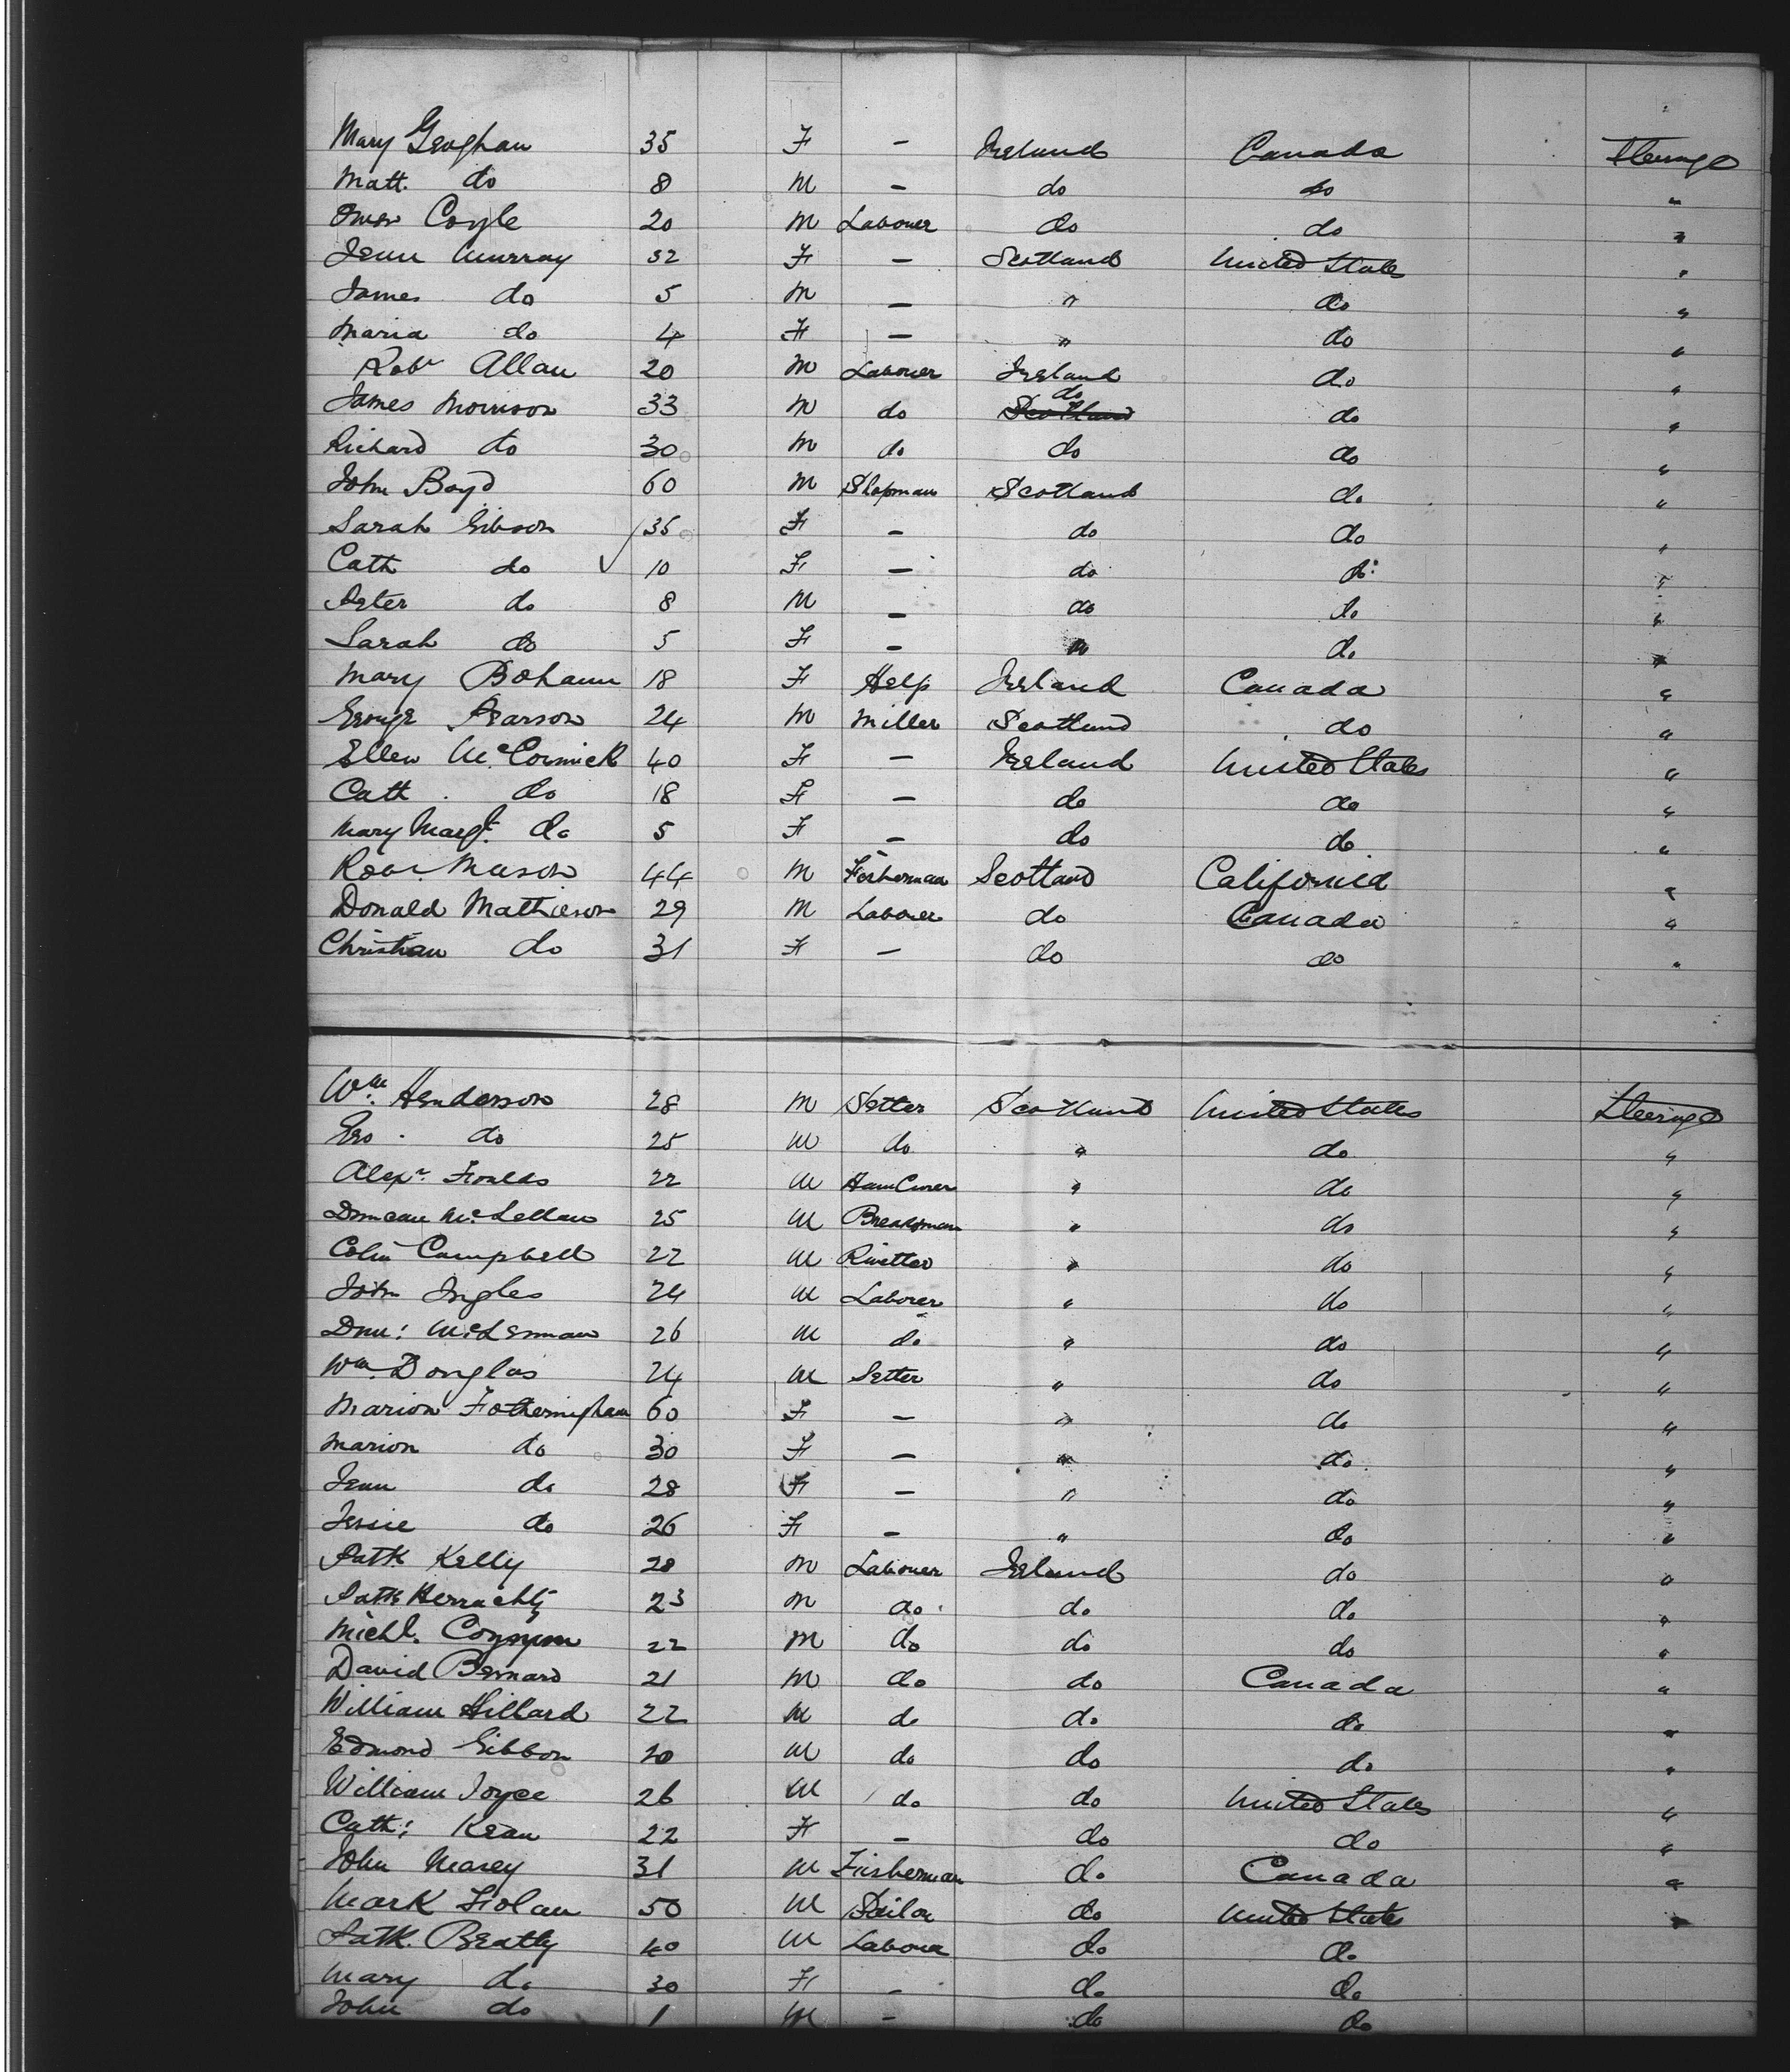 Mary Geoghan 35 F - Ireland Canada Steerage
Matt. do 8 M - do do "
Owen Coyle 20 M Labourer do do "
Jean Murray 32 F - Scotland United States "
James do 5 M - " do "
Maria do 4 F - " do "
Robt Allan 20 M Labourer Ireland do "
James Morrison 33 M do do do "
Richard do 30 M do do do "
John Boyd 60 M Shopman Scotland do "
Sarah Gibson 35 F - do do "
Cath do 10 F - do do "
Peter do 8 M - do do "
Sarah do 5 F - " do "
Mary Bohann 18 F Help Ireland Canada "
George Pearson 24 M Miller Scotland do "
Ellen McCormick 40 F - Ireland United States "
Cath. do 18 F - do do "
Mary Margt. do 5 F - do do "
Robt. Mason 44 M Fisherman Scotland California "
Donald Mathieson 29 M Labourer do Canada "
Christian do 31 F - do do "
Wm. Henderson 28 M Setter Scotland United States Steerage
Geo. do 25 M do " do "
Alexr. Foulds 22 M Ham Curer " do "
Duncan McLellan 25 M Breaksman " do "
Colin Campbell 22 M Rivetter " do "
John Ingles 24 M Laborer " do "
Dun: McLennan 26 M do " do "
Wm. Douglas 24 M Setter " do "
Marion Fotheringham 60 F - " do "
Marion do 30 F - " do "
Jean do 28 F - " do "
Jessie do 26 F - " do "
Patk Kelly 28 M Labourer Ireland do "
Patk Herrachty 23 M do do do "
Michl. 22 M do do do "
David Bernard 21 M do do Canada "
William Hillard 22 M do do do "
Edmond Gibbon 20 M do do do "
William Joyce 26 M do do United States "
Cath: Kean 22 F - do do "
John Marey 31 M Fisherman do Canada "
Mark Fiolan 50 M Sailor do United States "
Patk. Beatty 40 M Labourer do do
Mary do 30 F - do do
John do 1 M - do do